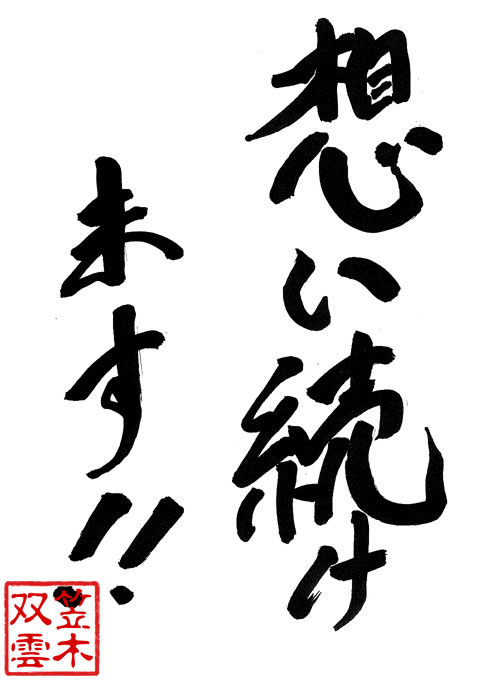 想い続け
ます!!
笠木
双雲